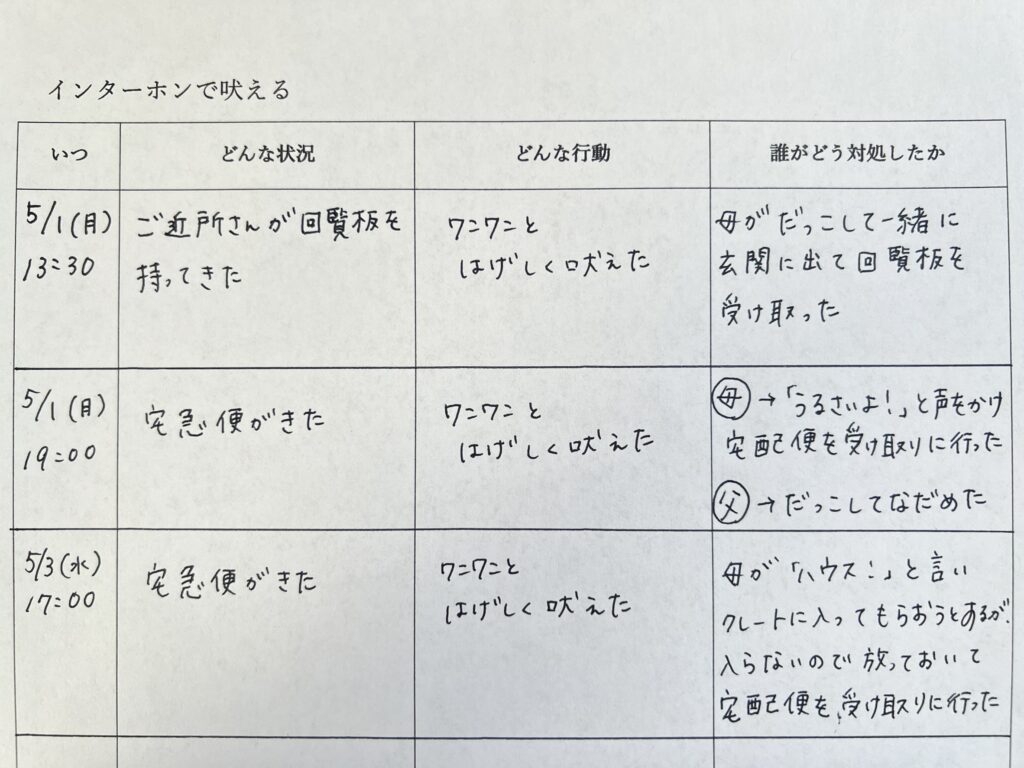 インターホンで吠える
いつ
どんな状況
どんな行動
誰がどう対処したか
5/1(月)
13:30
ご近所さんが回覧板を
持ってきた
ワンワンと
はげしく吠えた
母がだっこして一緒に
玄関に出て回覧板を
受け取った
5/1(月)
19:00
宅急便がきた
ワンワンと
はげしく吠えた
母→「うるさいよ!」と声をかけ
宅配便を受け取りに行った
父→だっこしてなだめた
5/3(水)
17:00
宅急便がきた
ワンワンと
はげしく吠えた
母が「ハウス!」と言い
クレートに入ってもらおうとするが、
入らないので放っておいて
宅配便を受け取りに行った